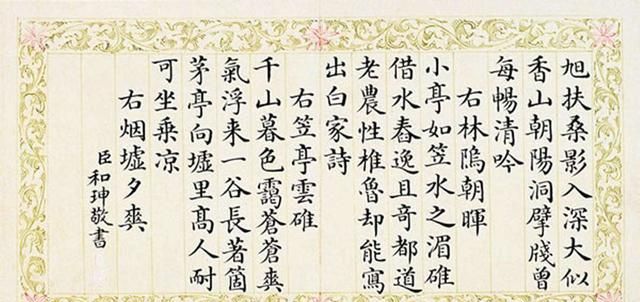 旭扶桑影入深大似
香山朝陽洞擘牋曾
每暢清吟
右林隖朝暉
小亭如笠水之湄碓
借水舂逸且奇都道
老農性椎魯却能寫
出白家詩
右笠亭雲碓
千山暮色靄蒼蒼爽
氣浮来一谷長著箇
茅亭向墟里髙人耐
可坐乗凉
右烟墟夕爽
臣和珅敬書